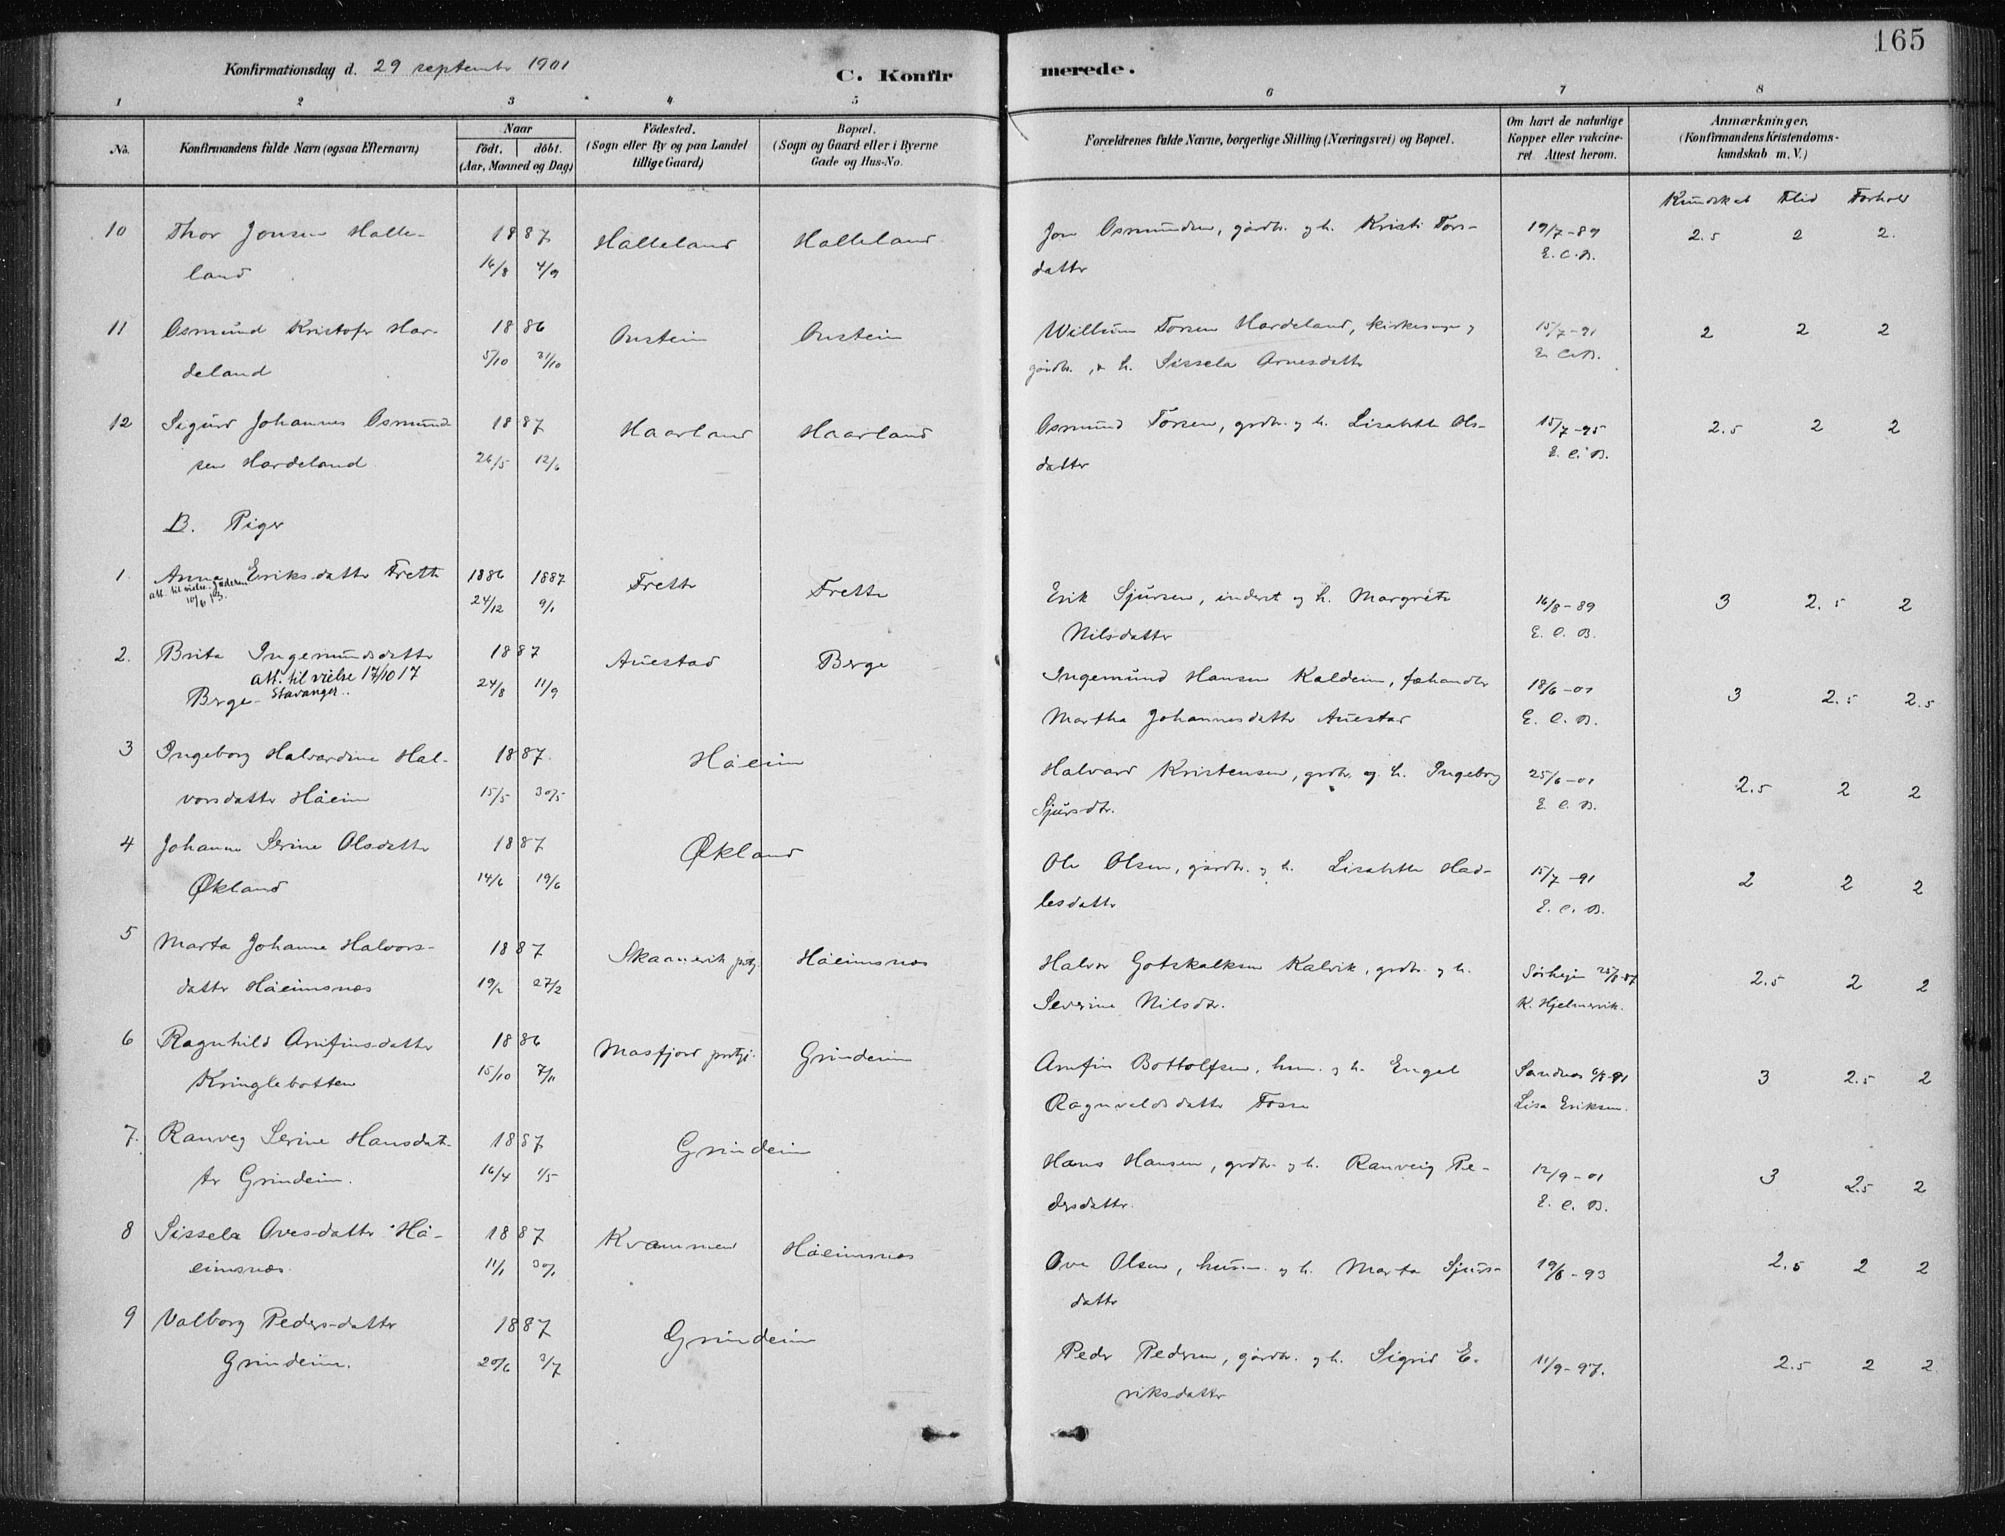 165
Konfirmationsdag d. 29 september 1901
C. Konfirmerede.
1 2 3 4 5 6 7 8
No.
Konfirmandens fulde Navn (ogsaa Efternavn)
Naar
födt. döbt.
(Aar, Maaned og Dag)
Födested.
(Sogn eller By og paa Landet
tillige Gaard)
Bopæl.
(Sogn og Gaard eller i Byerne
Gade og Hus-No.
Forældrenes fulde Navne, borgerlige Stilling (Næringsvei) og Bopæl.
Om havt de naturlige
Kopper eller vakcine-
ret. Attest herom.
Anmærkninger.
(Konfirmandens Kristendoms-
kundskab m. V.)
Kundskab Flid Forhold
10 Thor Jonsen Halle- 1887 Halleland Halleland Jon Osmundsen, gårdbr. og h. Kristi Tors- 19/7-89 2.5 2 2.
land 16/8 4/9 datter E.C.B.
11 Osmund Kristofer Har- 1886 Onstein Onstein Willum Torsen Hardeland, kirkesanger 15/7-91 2 2 2
deland 5/10 31/10 gårdbr., & h. Sissela Arnesdatter E.C.B.
12 Sigurd Johannes Osmund 1887 Haarland Haarland Osmund Torsen, grdbr. og h. Lisabeth Ols- 15/7-95 2.5 2 2
sen Hardeland 26/5 12/6 datter E.C.B.
B. Piger
1. Anna Eriksdatter Frette 1886 1887 Frette Frette Erik Sjursen, inderst og h. Margréte 16/8-89 3 2.5 2
att. til vielse Jæderen 24/12 9/1 Nilsdatter E.C.B.
2. Brita Ingemundsdatter 1887 Auestad Berge Ingemund Hansen Kaldeim, fæhandler 18/6-01 3 2.5 2.5
att. til vielse 17/10 17
Berge Stavanger. 24/8 11/9 Martha Johannesdatter Auestad E.C.B.
3 Ingeborg Halvardine Hal- 1887. Håeim Halvard Kristensen, grdbr. og h. Ingeborg 25/6-01 2.5 2 2
vorsdatter Håeim 15/5 30/5 Sjursdtr. E.C.B.
4 Johanne Serine Olsdatter 1887 Økland Ole Olsen, gårdbr. og h. Lisabeth Had- 15/7-91 2 2 2
Økland 14/6 19/6 lesdatter E.C.B.
5 Marta Johanne Halvors- 1887 Skaanevik prstgj. Håeimsnæs Halvor Gotskalksen Kalvik, grdbr. og h. 2.5 2 2
datter Håeimsnæs 19/2 27/2 Severine Nilsdtr. K. Hjelmervik.
6 Ragnhild Arnfinsdatter 1886 Masfjord prstgj. Grindeim Arnfin Bottolfsen, husm. og h. Engel Sandnæs 3 2.5 2
Kringlebotten 15/10 7/11 Ragnvaldsdatter Fosse Lisa Eriksen.
7. Ranveg Serine Hansdat- 1887 Grindeim Hans Hansen, grdbr. og h. Ranveig Pe- 12/9-01 3 2.5 2
ter Grindeim. 16/4 1/5 dersdatter. E.C.B.
8 Sissela Ovesdatter Hå- 1887 Kvammen Håeimsnæs Ove Olsen, husm. og h. Marta Sjurs- 19/8-93 2.5 2 2
eimsnæs. 11/1 30/1 datter
9 Valborg Pedersdatter 1887 Grindeim Peder Pedersen, gårdbr. og h. Sigrid E- 11/9-97. 2.5 2 2
Grindeim. 20/6 3/7 riksdatter